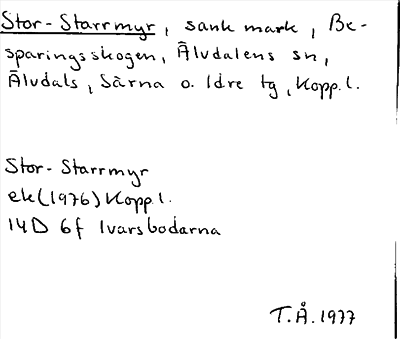 Stor-Starrmyr, sank mark, Be-
sparingsskogen, Älvdalens sn,
Älvdals, Särna o. Idre tg, Kopp.l.
Stor-Starrmyr
ek(1976) Kopp.l.
14D 6f Ivarsbodarna
T.Å.1977